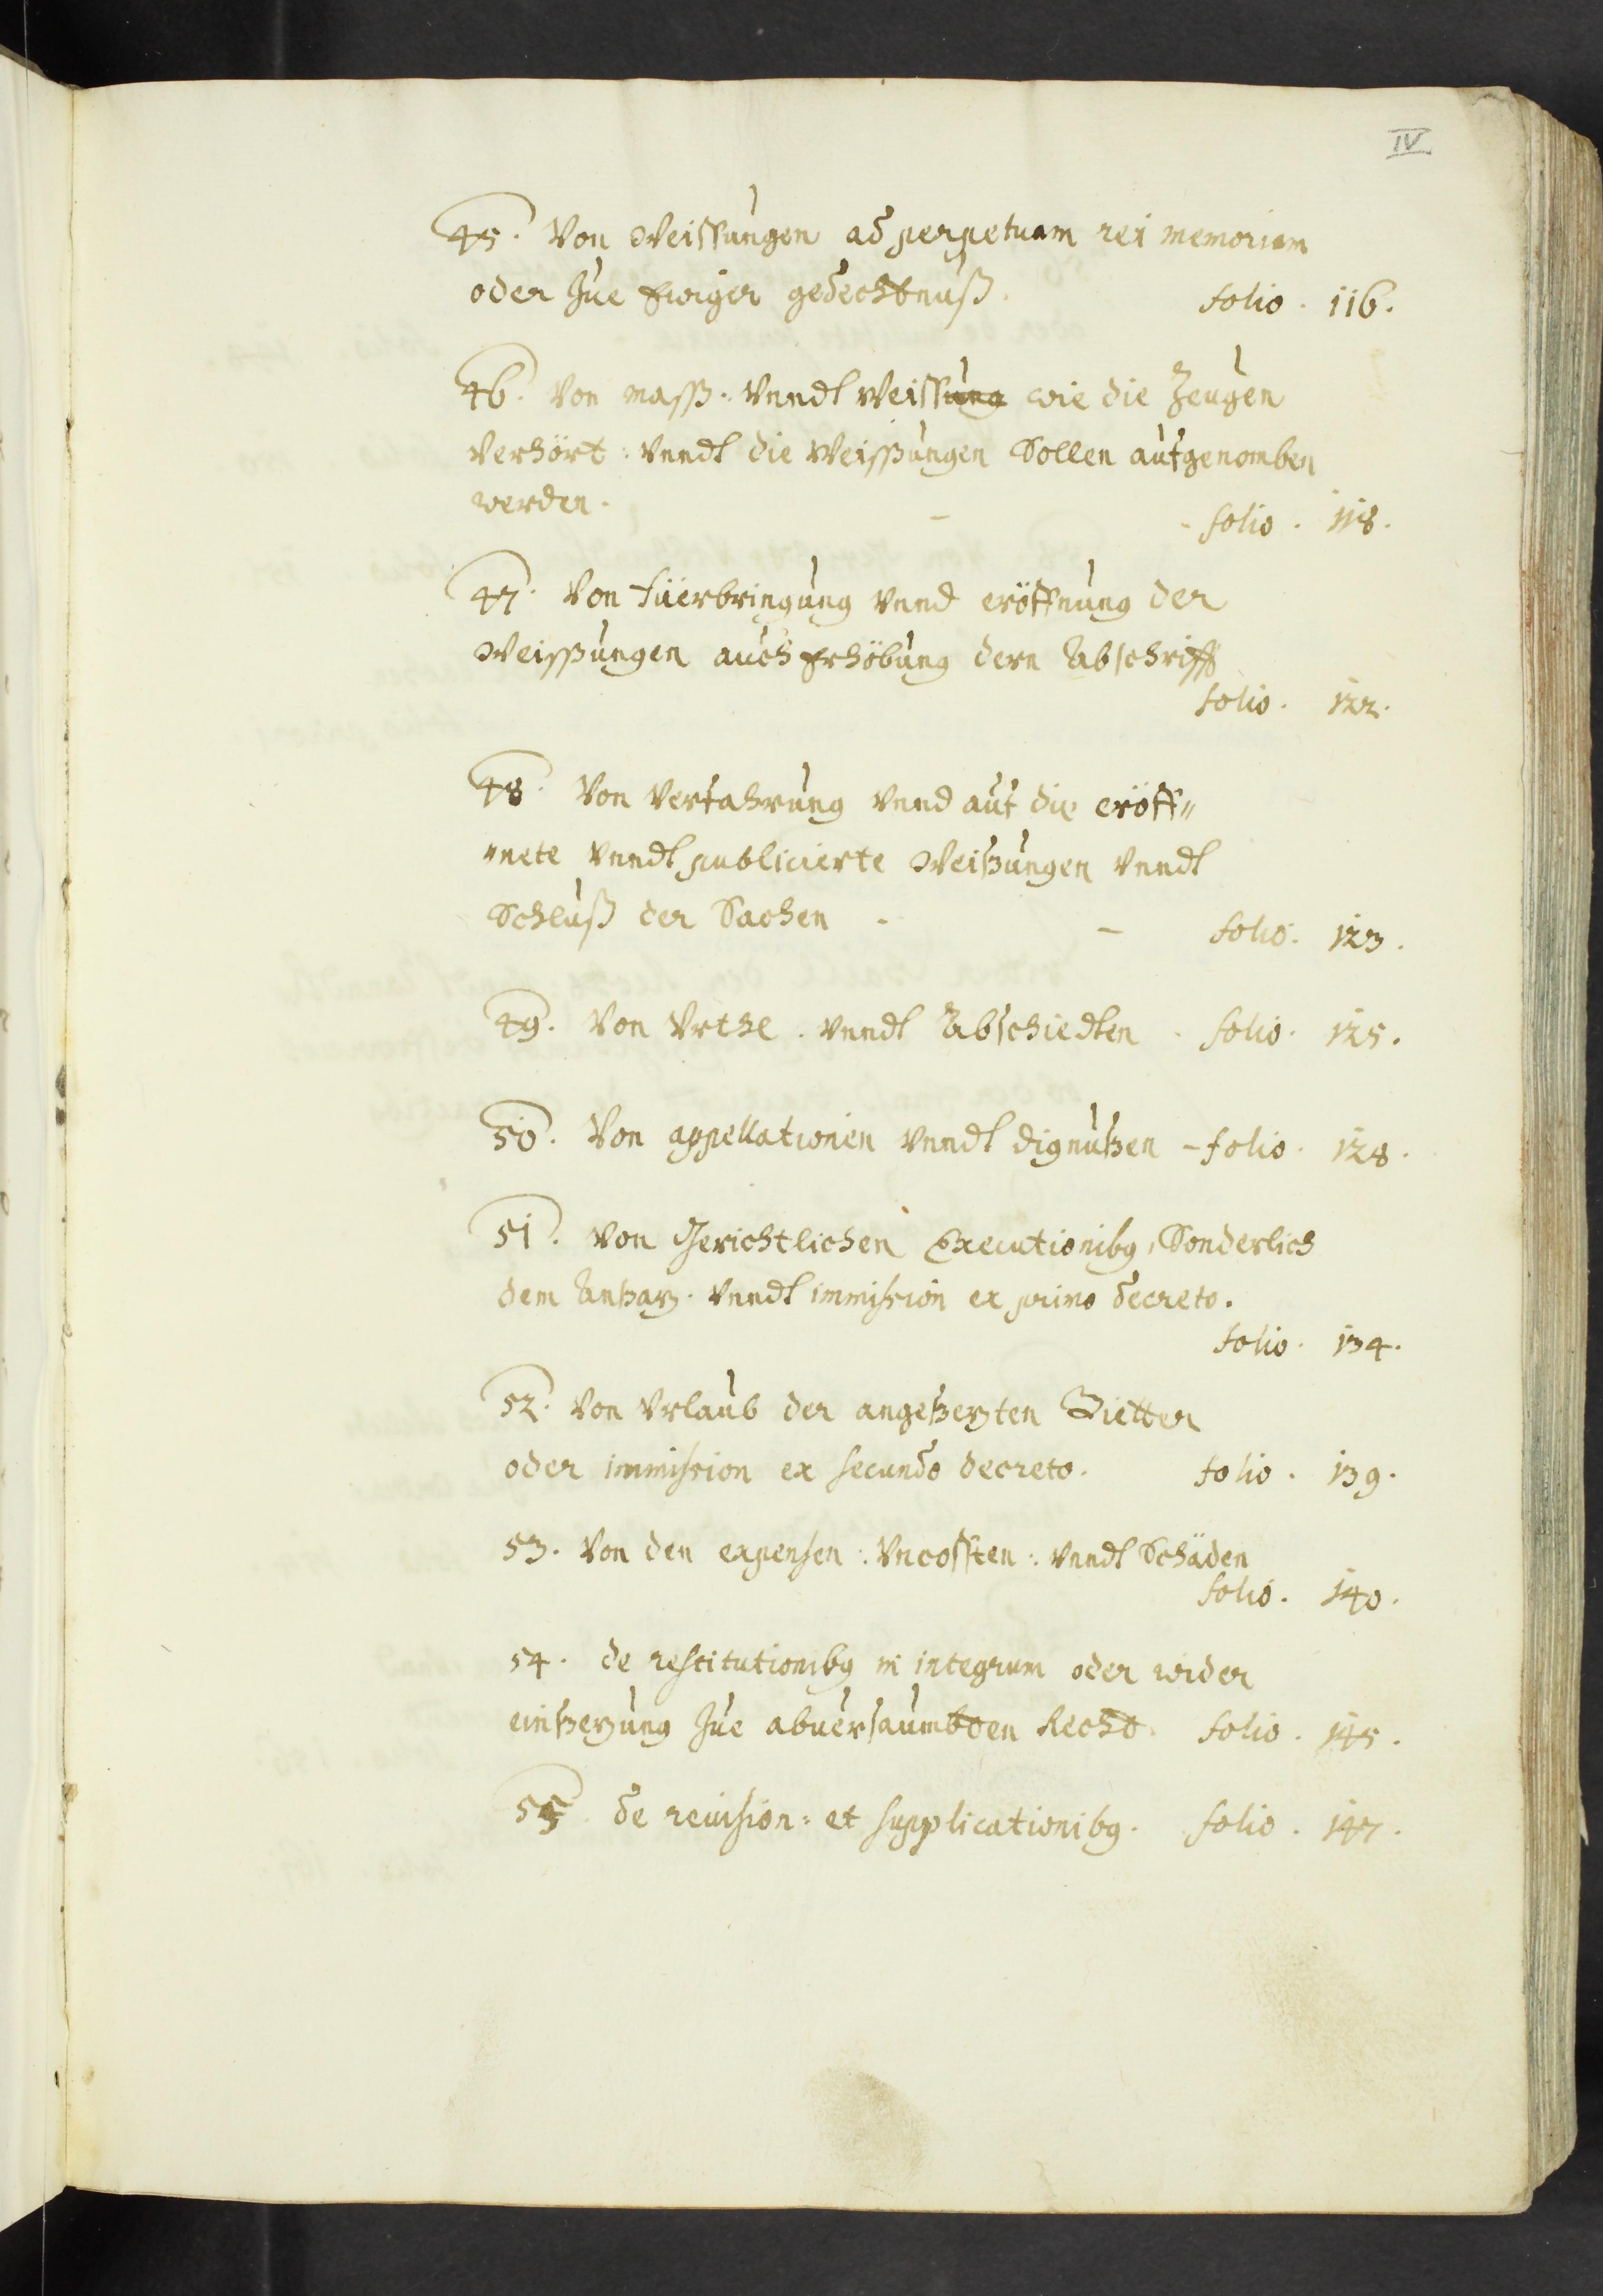 IV
45. Von Weissungen ad perpetuam rei memoriam
oder Zue Ewiger gedechtnuß. folio. 116.
46. Von mass. Vnndt Weissung wie die Zeugen
Verhört: Vnndt die Weissungen Sollen aufgenomben
werden. - - folio. 118.
47. Von füerbringung Vnnd eröffnung der
Weissungen auch Erhöbung dern Abschrifft
folio. 122.
48. Von Verfahrung Vnnd auf die eröff„
„nete Vnndt publicierte Weißungen Vnndt
Schluß der Sachen - - folio. 123.
49. Von Vrthl. Vnndt Abschiedten. folio. 125.
50. Von appellationen Vnndt dignußen - folio. 128.
51. Von Gerichtlichen Executionibus, Sonderlich
dem Ansaz. Vnndt immission ex primo decreto.
folio. 134.
52. Von Vrlaub der angesezten Güetter
oder immission ex secundo decreto. folio. 139.
53. Von den expensen: Vncossten: Vnndt Schäden
folio. 140.
54. de restitutionibus in integrum oder wider
einsezung Zue abuersaumbten Recht. folio. 145.
55. de reuision: et supplicationibus. folio. 147.